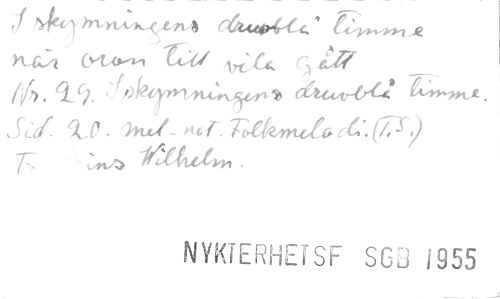 I skymningens druvblå timme
när oron till vila gått
Nr. 29. I skymningens druvblå timme.
Sid. 20. mel-not. Folkmelodi. (T.S.)
Wilhelm.
NYKTERHETSF SGB 1955